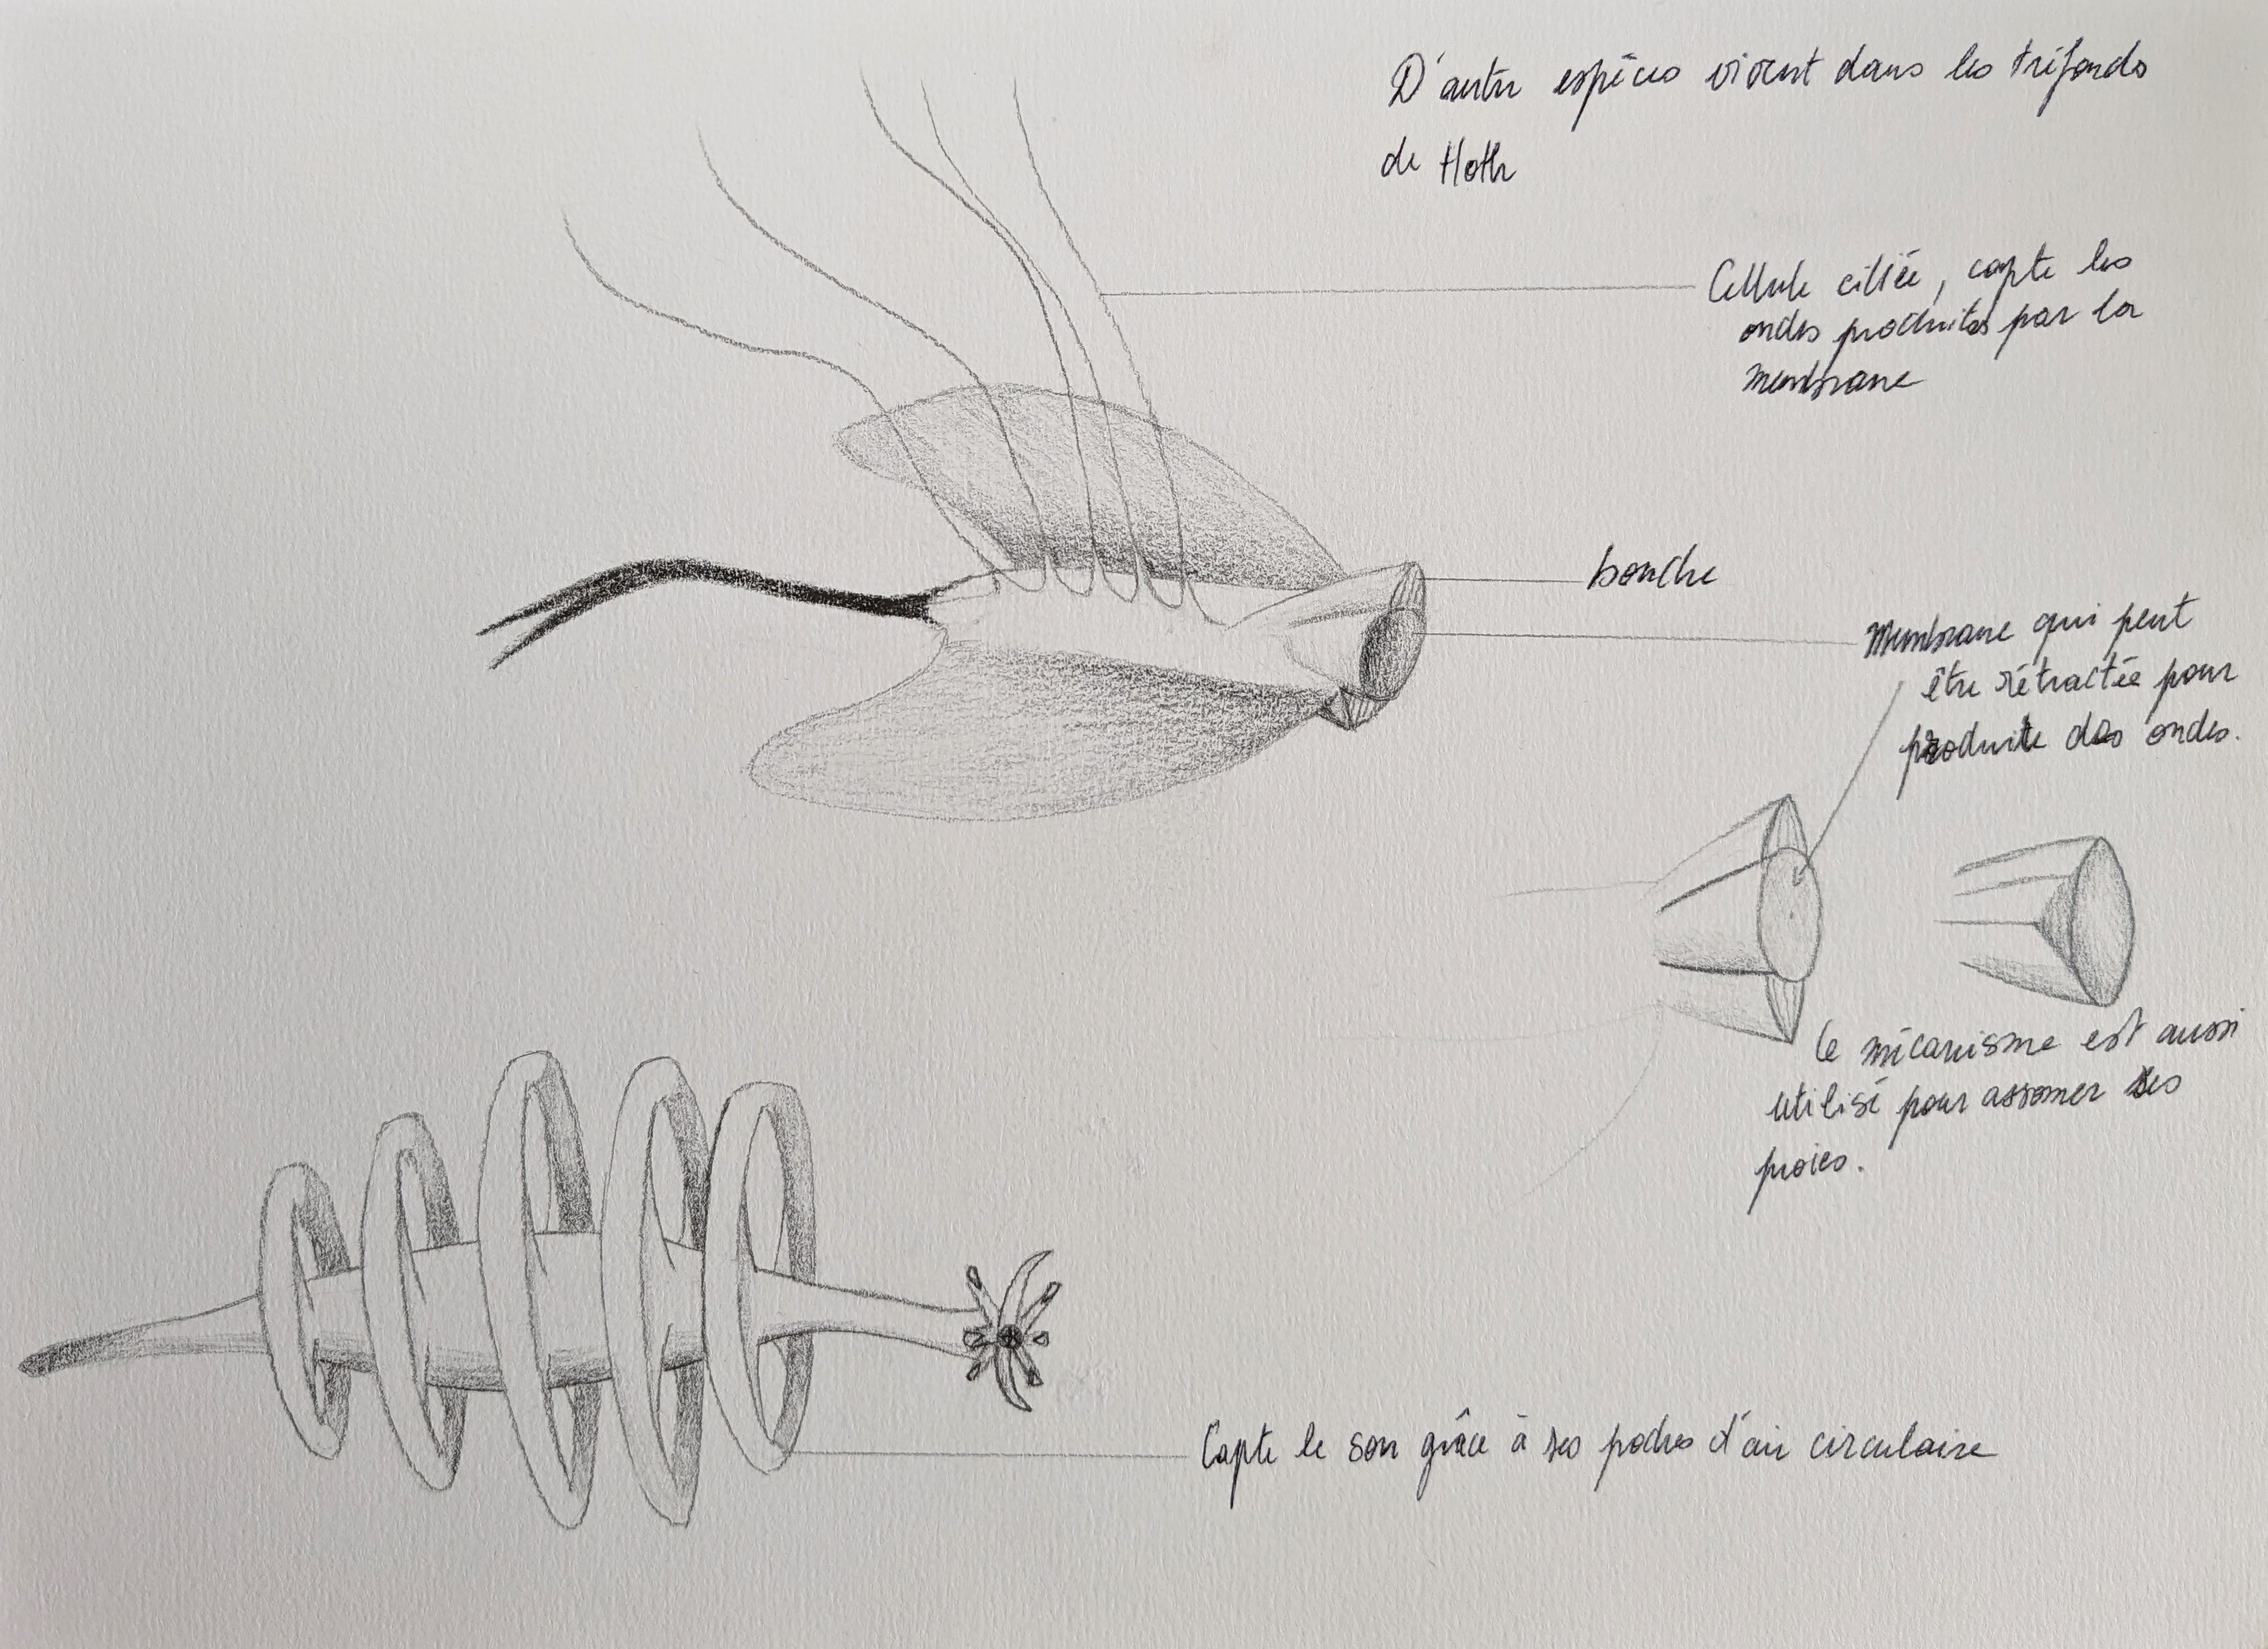 D'autre espèces vivent dans les tréfonds
de Hoth
Cellule ciliée, capte les
ondes produites par la
membrane
bouche
Membrane qui peut
être rétractée pour
produite des ondes.
Ce mécanisme est aussi
utilisé pour assomer ses
proies.
Capte le son grâce à ses poches d'air circulaire